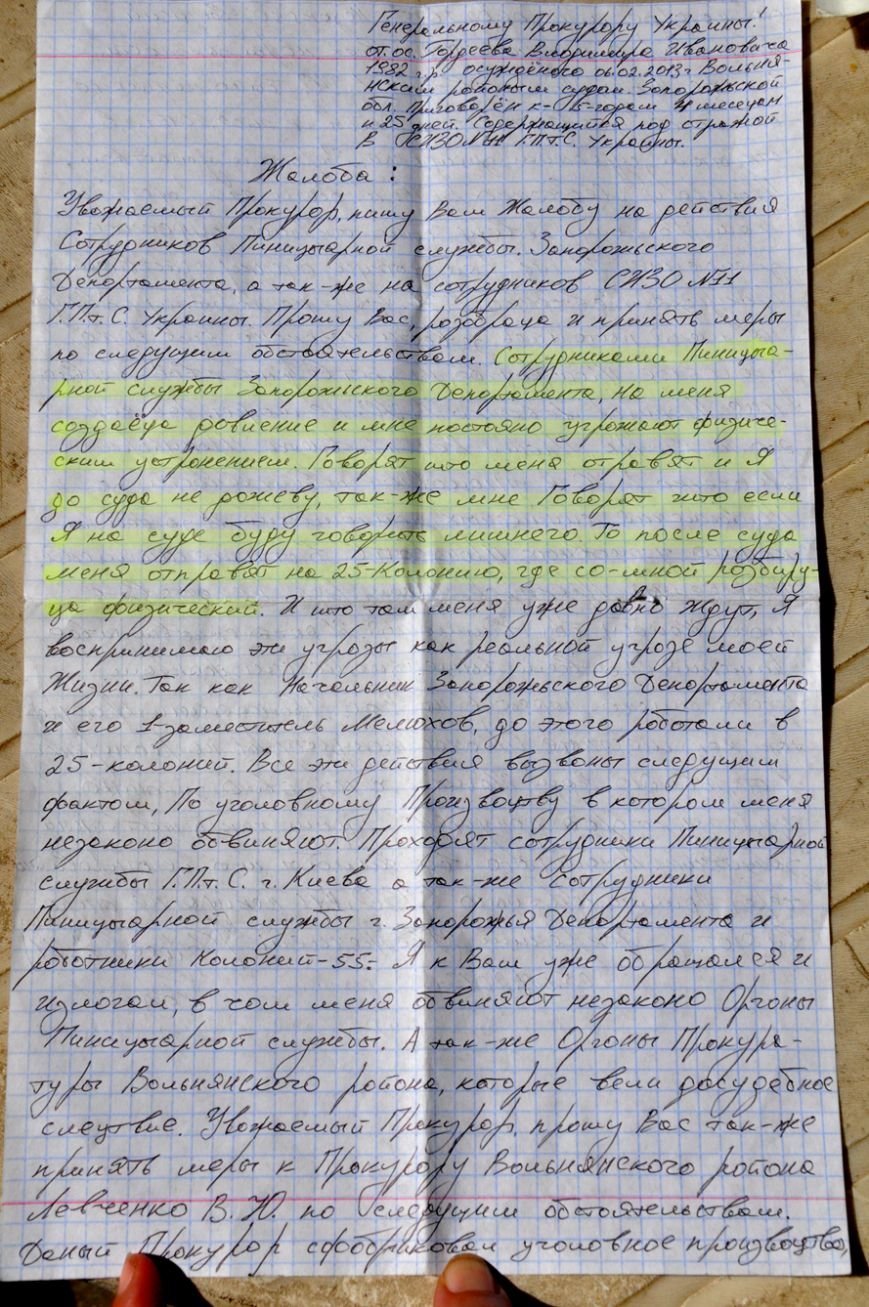 Генеральному Прокурору Украины!
от ос. Гордеева Владимира Ивановича
1982 г.р. осуждёного 06.02.2013г Вольня-
нским районым судом Запорожской
обл. Приговорён к - 5-годам 4 месецам
и 25 дней. Содержащийся под стражой
В СИЗО №11 Г.П.т.С. Украины.
Жалоба:
Уважаемый Прокурор, пишу Вам Жалобу на действия
Сотрудников Пиницыарной службы. Запорожьского
Департамента, а так-же на сотрудников СИЗО №11
Г.П.т.С. Украины. Прошу Вас, розобраца и принять меры
по следущим обстоятельствам. Сотрудниками Пиницыа-
рной службы Запорожьского Департамента, на меня
создаёца довление и мне постояно угрожают физиче-
ским устронением. Говорят што меня отравят и Я
до суда не дожеву, так-же мне Говорят што если
Я на суде буду говорыть лишнего. То после суда
меня отправят на 25-Колонию, где со-мной розбиру-
ца физический. И што там меня уже довно ждут, Я
воспринимаю эти угрозы как реальной угрозе моей
Жизни. Так как Начальник Запорожьского Департамента
и его 1-заместитель Мелюхов, до этого роботали в
25-колоний. Все эти действия вызвоны следущим
фактом, По уголовному Произвоцтву в котором меня
незаконо обвиняют. Проходят сотрудники Пиницыарной
службы Г.П.т.С. г. Киева а так-же Сотрудники
Пиницыарной службы г. Запорожья Департамента и
роботники Колоний-55. Я к Вам уже обращался и
излогал, в чом меня обвиняют незаконо Оргоны
Пиницыарной службы. А так-же Оргоны Прокура-
туры Вольнянского ройона, которые вели досудебное
слецтвие. Уважаемый Прокурор, прошу Вас так-же
принять меры к Прокурору Вольнянского ройона
Левченко В. Ю. по следущим обстоятельствам.
Даный Прокурор сфобриковал уголовное произвоцтво,